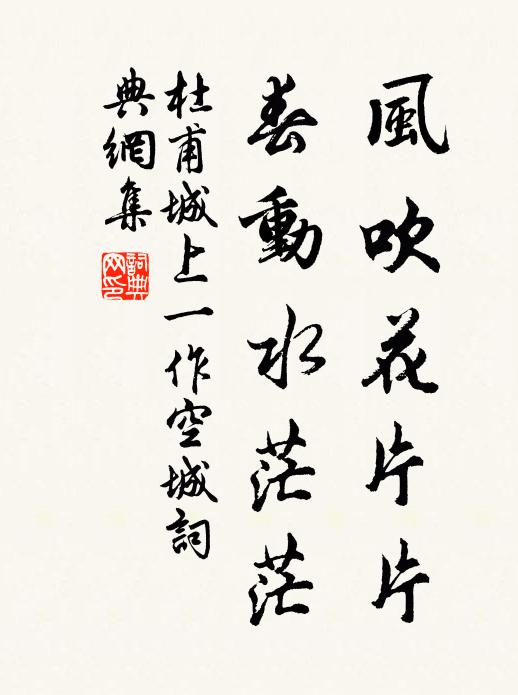 風吹花片片
春動水茫茫
杜甫城上一作空城詞
典網集
詞典
网印